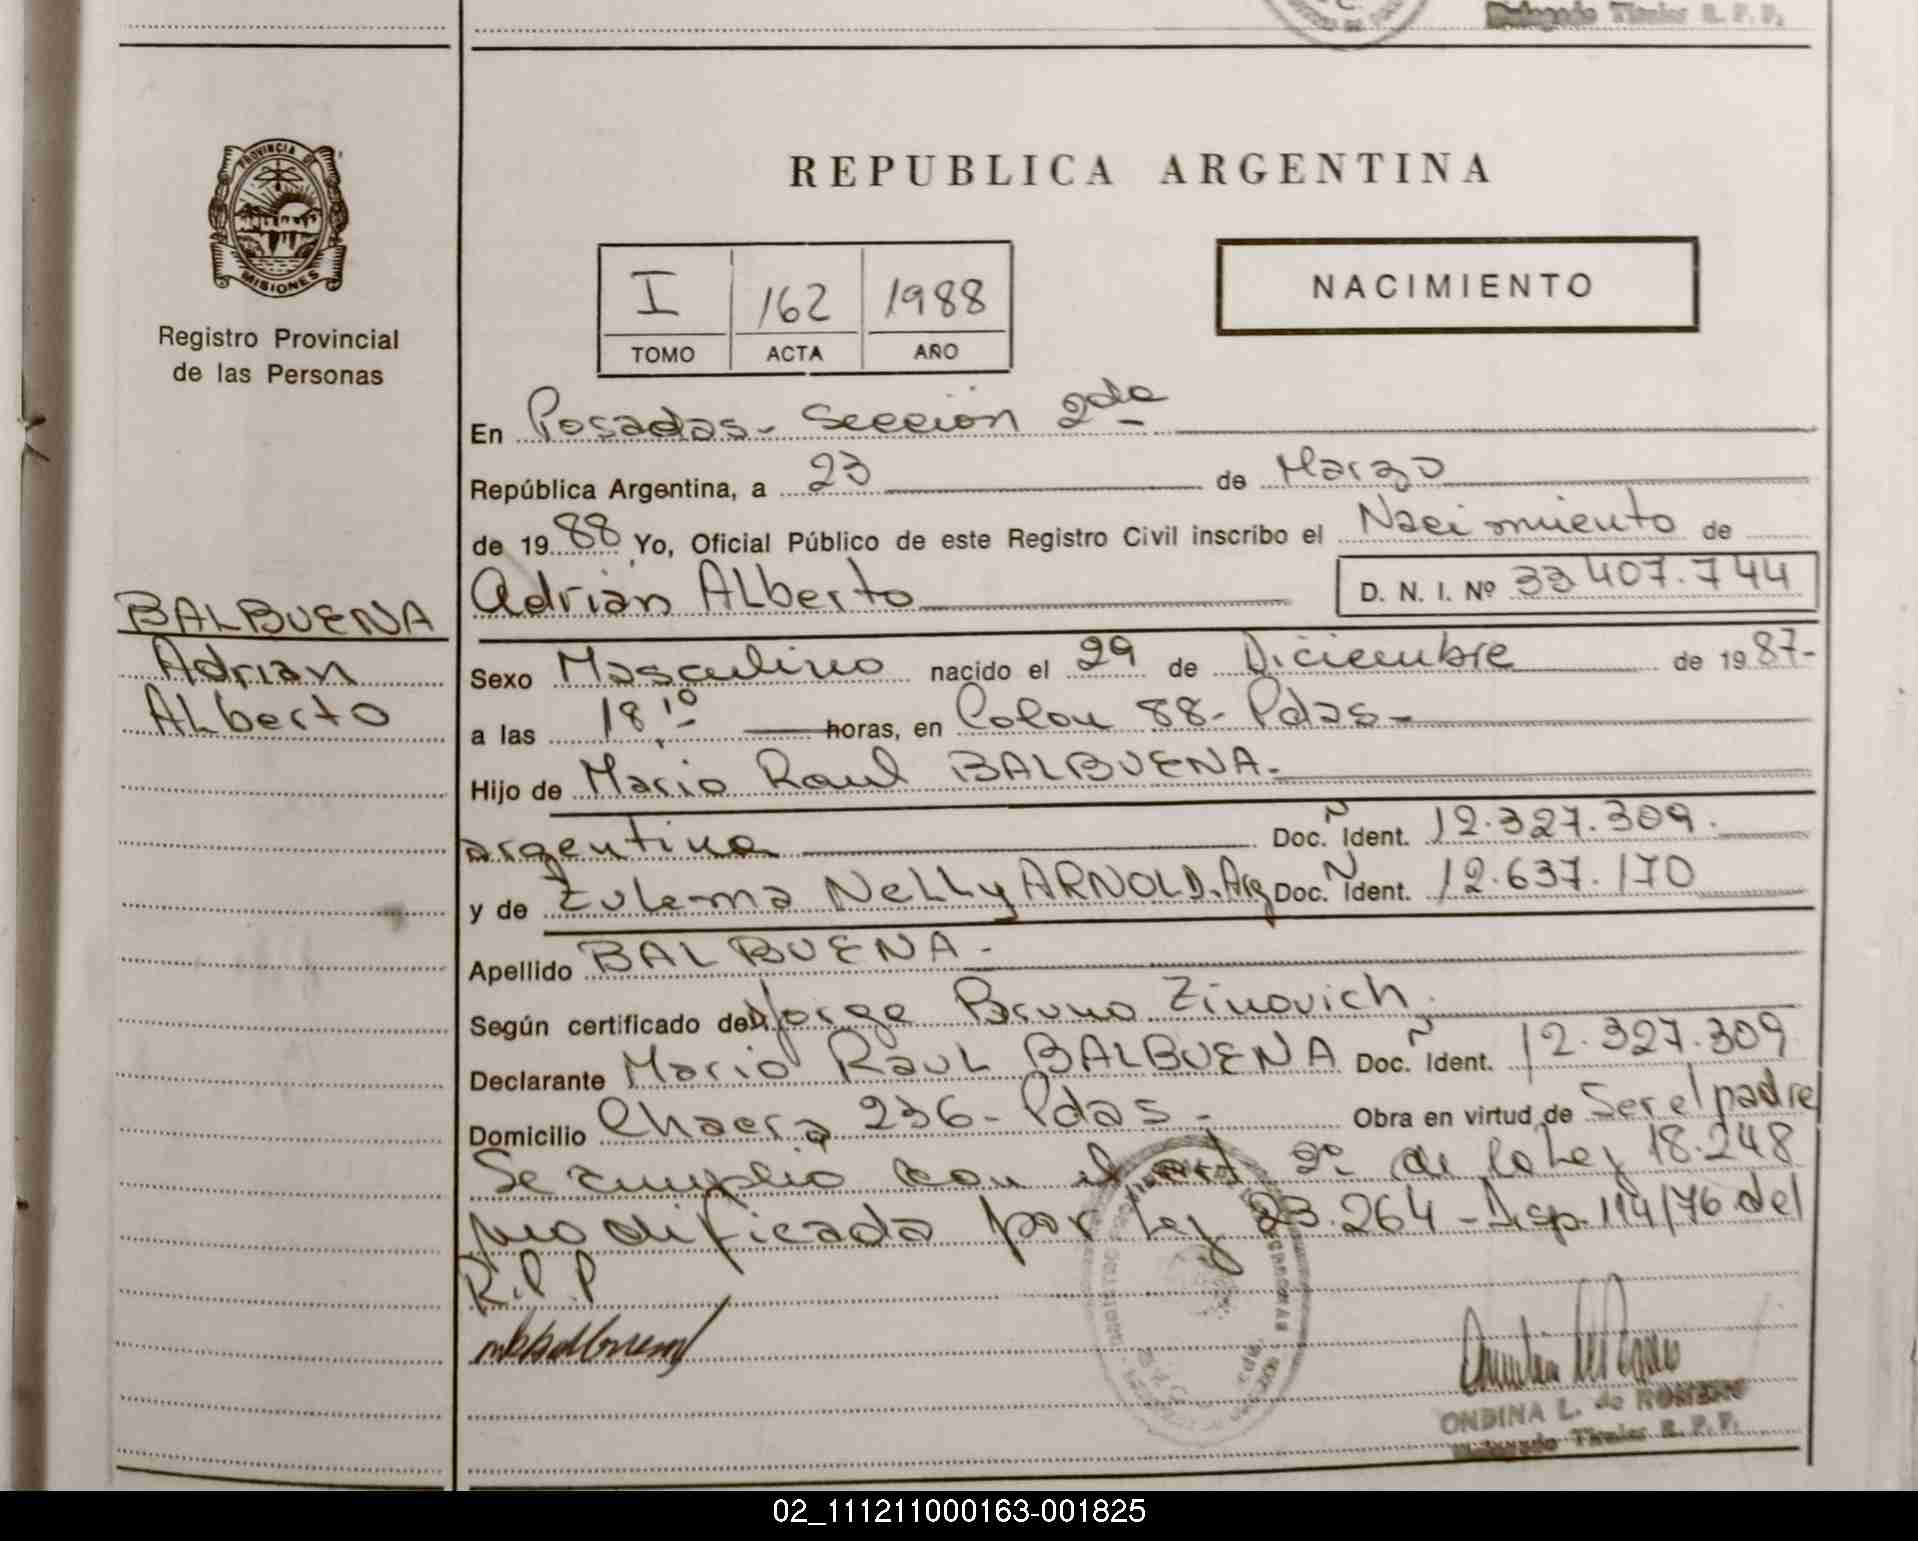 Delegado Titular R. P. P.
PROVINCIA DE
MISIONES
Registro Provincial
de las Personas
REPUBLICA ARGENTINA
I 162 1988
TOMO ACTA AÑO
NACIMIENTO
En Posadas - Sección 2da
República Argentina, a 23 de Marzo
de 1988 Yo, Oficial Público de este Registro Civil inscribo el Nacimiento de
Adrián Alberto D. N. I. Nº 33.407.744
BALBUENA
Adrián
Alberto
Sexo Masculino nacido el 29 de Diciembre de 1987-
a las 18,10 horas, en Colon 88 - Pdas -
Hijo de Mario Raul BALBUENA -
argentino Doc. Ident. 12.327.309.
y de Zulema Nelly ARNOLD. Arg Doc. Ident. 12.637.170
Apellido BALBUENA -
Según certificado de Jorge Bruno Zinovich.
Declarante Mario Raul BALBUENA Doc. Ident. 12.327.309
Domicilio Chacra 236 - Pdas - Obra en virtud de Ser el padre
Se cumplió con el art 2º de la Ley 18.248
modificada por Ley 23.264 - Disp. 114/76 del
R.P.P
ONDINA L. de ROMERO
Delegado Titular R. P. P.
02_111211000163-001825